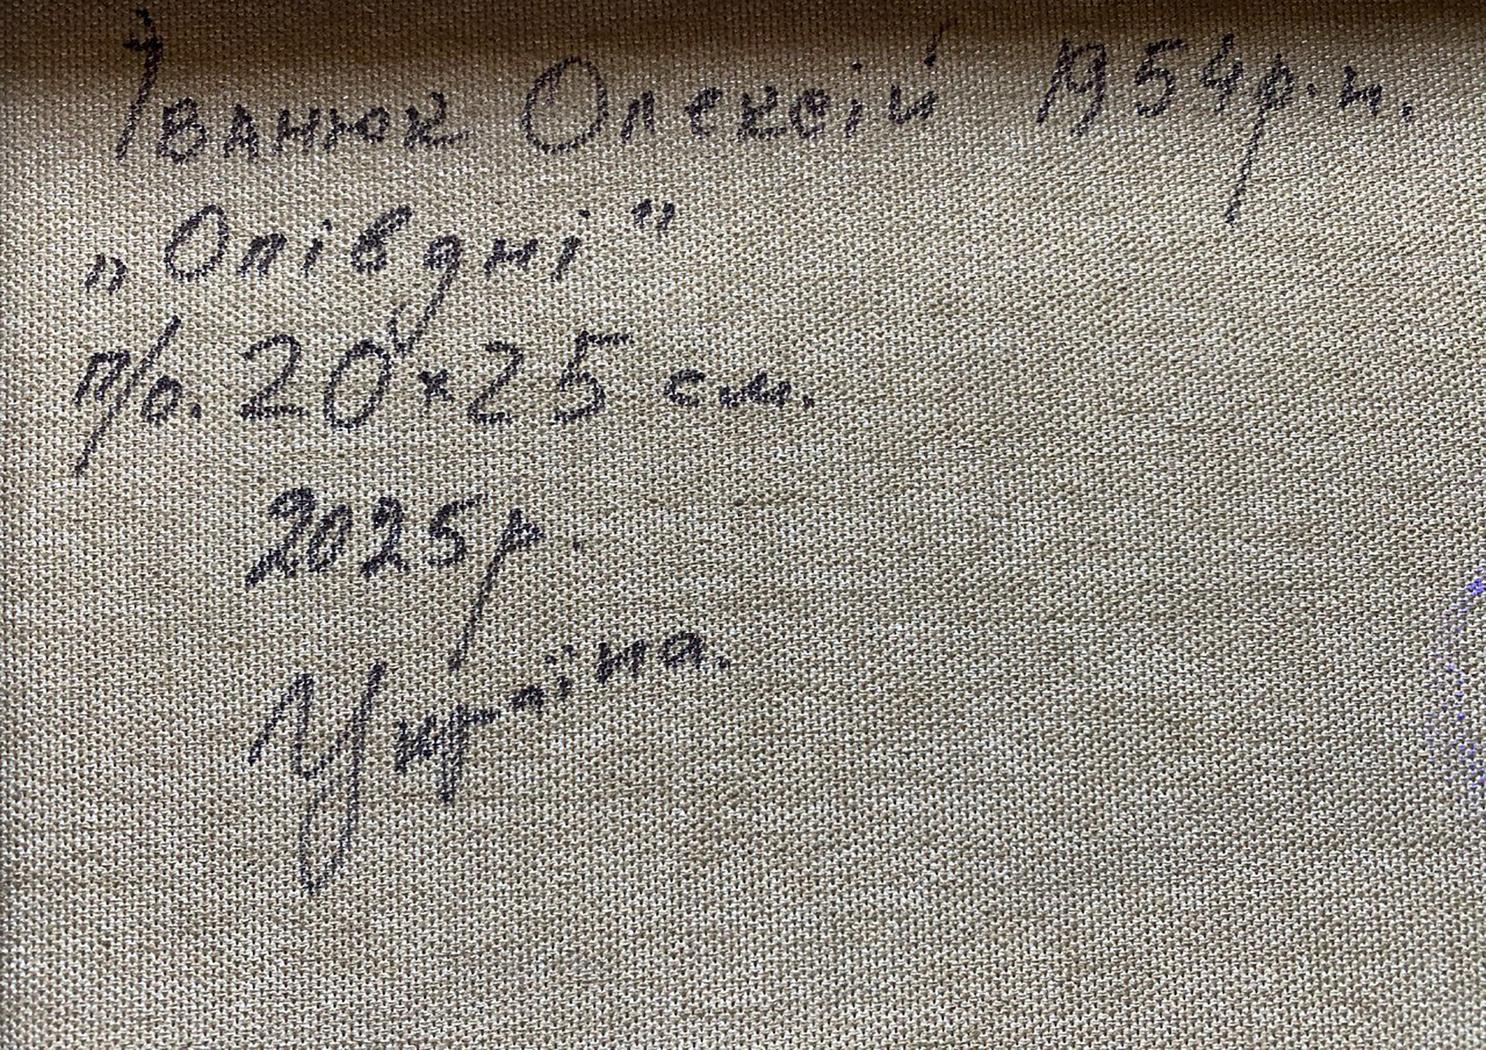 Іванюк Олексій 1954р.н.
„Опівдні"
п/о. 20×25 см.
2025р.
Україна.